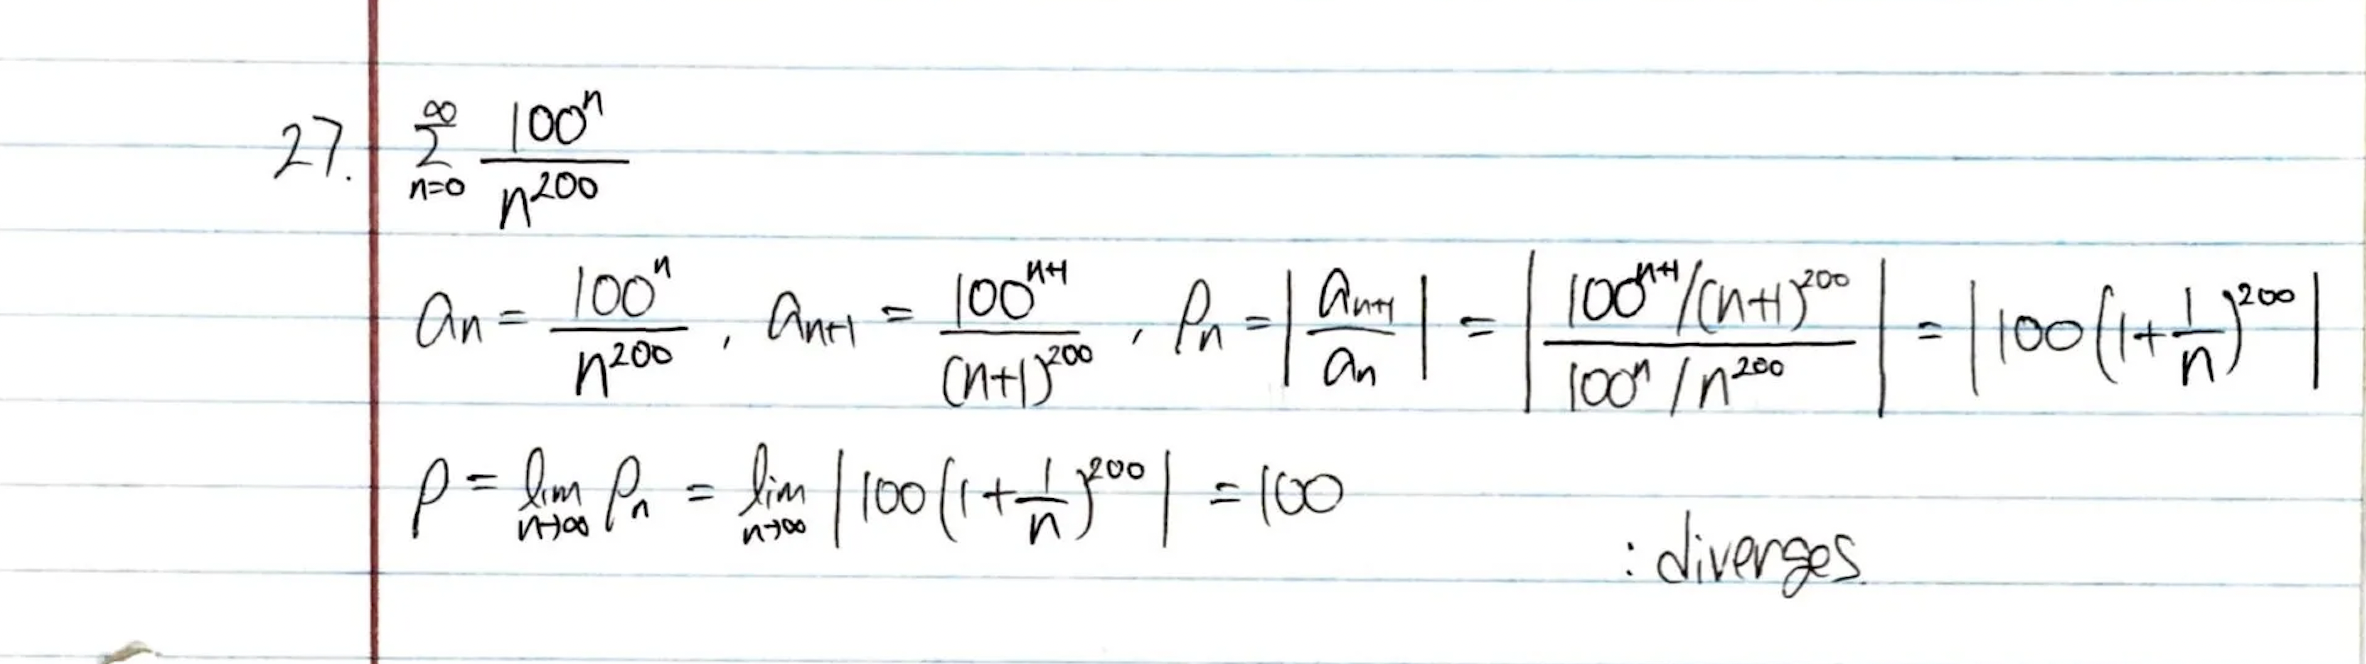 27. $\sum_{n=0}^{\infty} \frac{100^n}{n^{200}}$
$a_n = \frac{100^n}{n^{200}}$, $a_{n+1} = \frac{100^{n+1}}{(n+1)^{200}}$, $\rho_n = \left|\frac{a_{n+1}}{a_n}\right| = \left|\frac{100^{n+1}/(n+1)^{200}}{100^n/n^{200}}\right| = \left|100\left(1+\frac{1}{n}\right)^{200}\right|$
$\rho = \lim_{n\to\infty} \rho_n = \lim_{n\to\infty} \left|100\left(1+\frac{1}{n}\right)^{200}\right| = 100$
: diverges